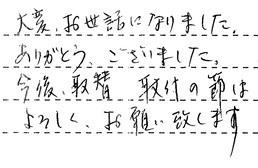 大変、お世話になりました。
ありがとう、ございました。
今後、取替 取付の節は
よろしく、お願い致します